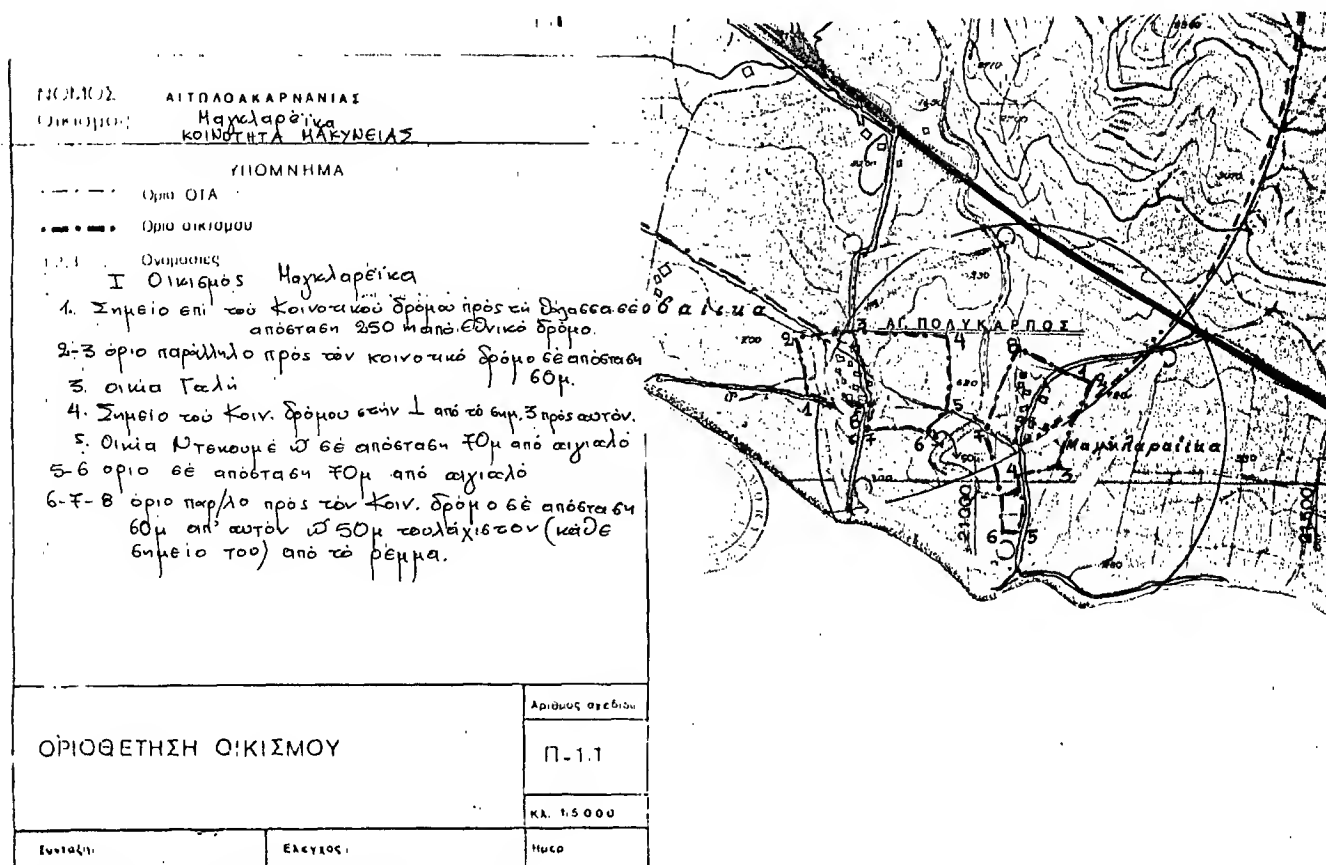 ΝΟΜΟΣ ΑΙΤΩΛΟΑΚΑΡΝΑΝΙΑΣ
Οικισμος Μαγκλαρέϊκα
ΚΟΙΝΟΤΗΤΑ ΜΑΚΥΝΕΙΑΣ
ΥΠΟΜΝΗΜΑ
Οριο ΟΤΑ
Οριο οικισμου
1.2.3 Ονομασιες
I Οικισμός Μαγκλαρέϊκα
1. Σημείο επί του Κοινοτικού δρόμου πρός τη θάλασσα σε
απόσταση 250 m από Εθνικό δρόμο.
2-3 όριο παράλληλο πρός τον κοινοτικό δρόμο σε απόσταση
60μ.
3. οικία Γαλή
4. Σημείο του Κοιν. δρόμου στήν ⊥ από τό σημ. 3 πρός αυτόν.
5. Οικία Ντεκουμέ σέ απόσταση 70μ από αιγιαλό
5-6 όριο σέ απόσταση 70μ από αιγιαλό
6-7-8 όριο παρ/λο πρός τόν Κοιν. δρόμο σέ απόσταση
60μ απ' αυτόν 50μ τουλάχιστον (κάθε
σημείο του) από τό ρέμμα.
ΟΡΙΟΘΕΤΗΣΗ ΟΙΚΙΣΜΟΥ
Αριθμος σχεδιου
Π-1.1
ΚΛ. 1:5000
Συνταξη:
Ελεγχος:
Ημερ
βαίικα
ΑΓ. ΠΟΛΥΚΑΡΠΟΣ
Μαγκλαραίικα
2 3 4
1 5
7 6
8 1 2
7
4 3
6 5
21000
21500